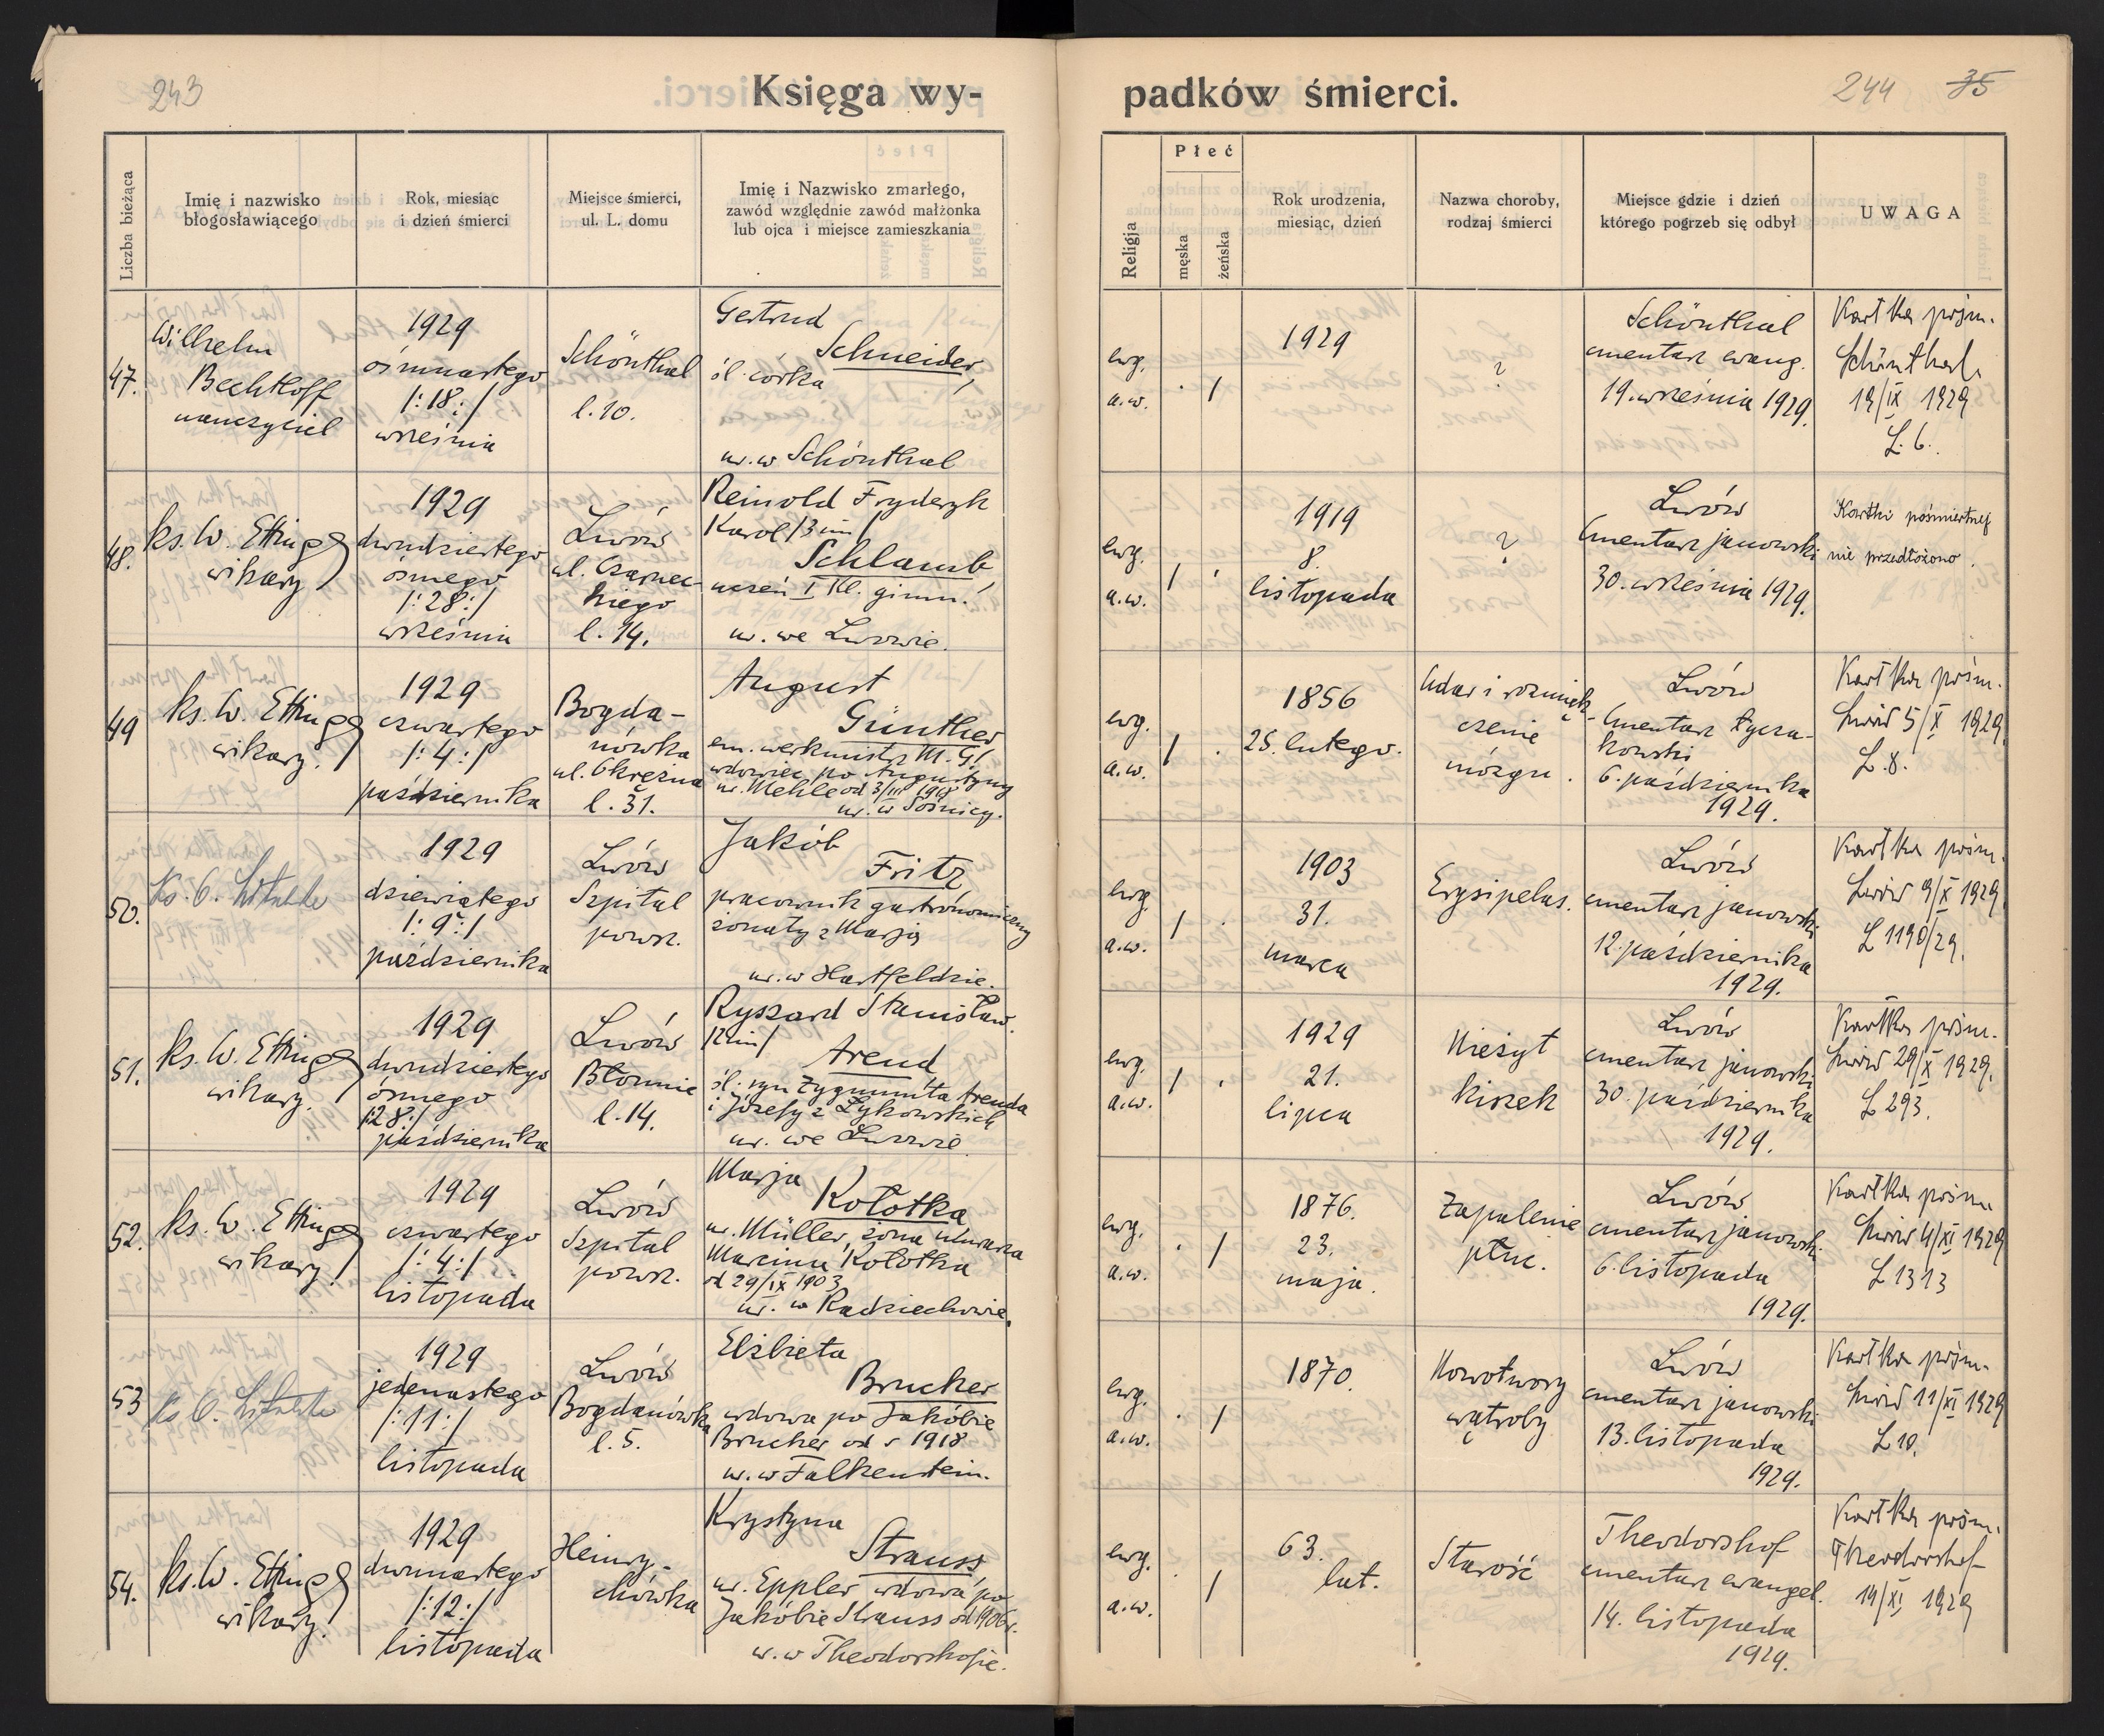 243
Księga wy-
padków śmierci.
244 35
Liczba bieżąca
Imię i nazwisko
błogosławiącego
Rok, miesiąc
i dzień śmierci
Miejsce śmierci,
ul. L. domu
Imię i Nazwisko zmarłego,
zawód względnie zawód małżonka
lub ojca i miejsce zamieszkania
Religja
Płeć
męska
żeńska
Rok urodzenia,
miesiąc, dzień
Nazwa choroby,
rodzaj śmierci
Miejsce gdzie i dzień
którego pogrzeb się odbył
UWAGA
47.
Wilhelm
Bechtloff
nauczyciel
1929
ósmnastego
/:18:/
września
Schönthal
l. 10.
Gertrud
Schneider,
śl. córka
ur. w Schönthal
ewg.
a.w.
. /
1929
?
Schönthal
cmentarz ewang.
19. września 1929.
Kartka pośm.
Schönthal
19/IX 1929
L. 6.
48.
ks. W. Ettinger
wikary
1929
dwudziestego
ósmego
/:28:/
września
Lwów
ul. Czarnec-
kiego
l. 14.
Reinold Fryderyk
Karol /3 im/
Schlamb
uczeń I kl. gimn.
ur. we Lwowie.
ewg.
a.w.
/ .
1919
8.
listopada
?
Lwów
Cmentarz janowski
30. września 1929.
Kartki pośmiertnej
nie przedłożono.
49
ks. W. Ettinger
wikary.
1929
czwartego
/:4:/
października
Bogda-
nówka
ul. Okrężna
l. 31.
August
Günther
em. werkmistrz M.G.
wdowiec po Augustyny
ur. Mehle od 3/III 1918
ur. w Sośnicy.
ewg.
a.w.
/ .
1856
25. lutego.
Udar i rozmięk-
czenie
mózgu.
Lwów
Cmentarz Łycza-
kowski
6. października
1929.
Kartka pośm.
Lwów 5/X 1929.
L. 8.
50.
1929
dziewiątego
/:9:/
października
Lwów
Szpital
powsz.
Jakób
Fritz
pracownik gastronomiczny
żonaty z Marją
ur. w Hartfeldzie.
ewg.
a.w.
/ .
1903
31.
marca
Erysipelas.
Lwów
cmentarz janowski
12. października
1929.
Kartka pośm.
Lwów 9/X 1929.
L 1190/29.
51.
ks. W. Ettinger
wikary.
1929
dwudziestego
ósmego
/:28:/
października
Lwów
Błonnie
l. 14.
Ryszard Stanisław.
/2 im/
Arend
śl. syn Zygmunta Arenda
i Józefy z Łykowskich
ur. we Lwowie
ewg.
a.w.
/ .
1929
21.
lipca
Nieżyt
kiszek
Lwów
cmentarz janowski
30. października
1929.
Kartka pośm.
Lwów 29/X 1929.
L 293.
52.
ks. W. Ettinger
wikary.
1929
czwartego
/:4:/
listopada
Lwów
Szpital
powsz.
Marja
Kołotka
ur. Müller, żona
Marcina Kołotka
od 29/IX 1903
ur. w Radziechowie.
ewg.
a.w.
. /
1876.
23.
maja.
Zapalenie
płuc.
Lwów
cmentarz janowski
6. listopada
1929.
Kartka pośm.
Lwów 4/XI 1929
L 1313
53
1929
jedenastego
/:11:/
listopada
Lwów
Bogdanówka
l. 5.
Elżbieta
Brucker
wdowa po Jakóbie
Brucker od r 1918
ur. w Falkenstein.
ewg.
a.w.
. /
1870.
Nowotwory
wątroby
Lwów
cmentarz janowski
13. listopada
1929.
Kartka pośm.
Lwów 11/XI 1929
L 10.
54.
ks. W. Ettinger
wikary.
1929
dwunastego
/:12:/
listopada
Heinry-
chówka
Krystyna
Strauss
ur. Eppler wdowa po
Jakóbie Strauss od 1906 r.
ur. w Theodorshofie.
ewg.
a.w.
. /
63.
lat.
Starość
Theodorshof
cmentarz ewangel.
14. listopada
1929.
Kartka pośm.
Theodorshof
14/XI 1929